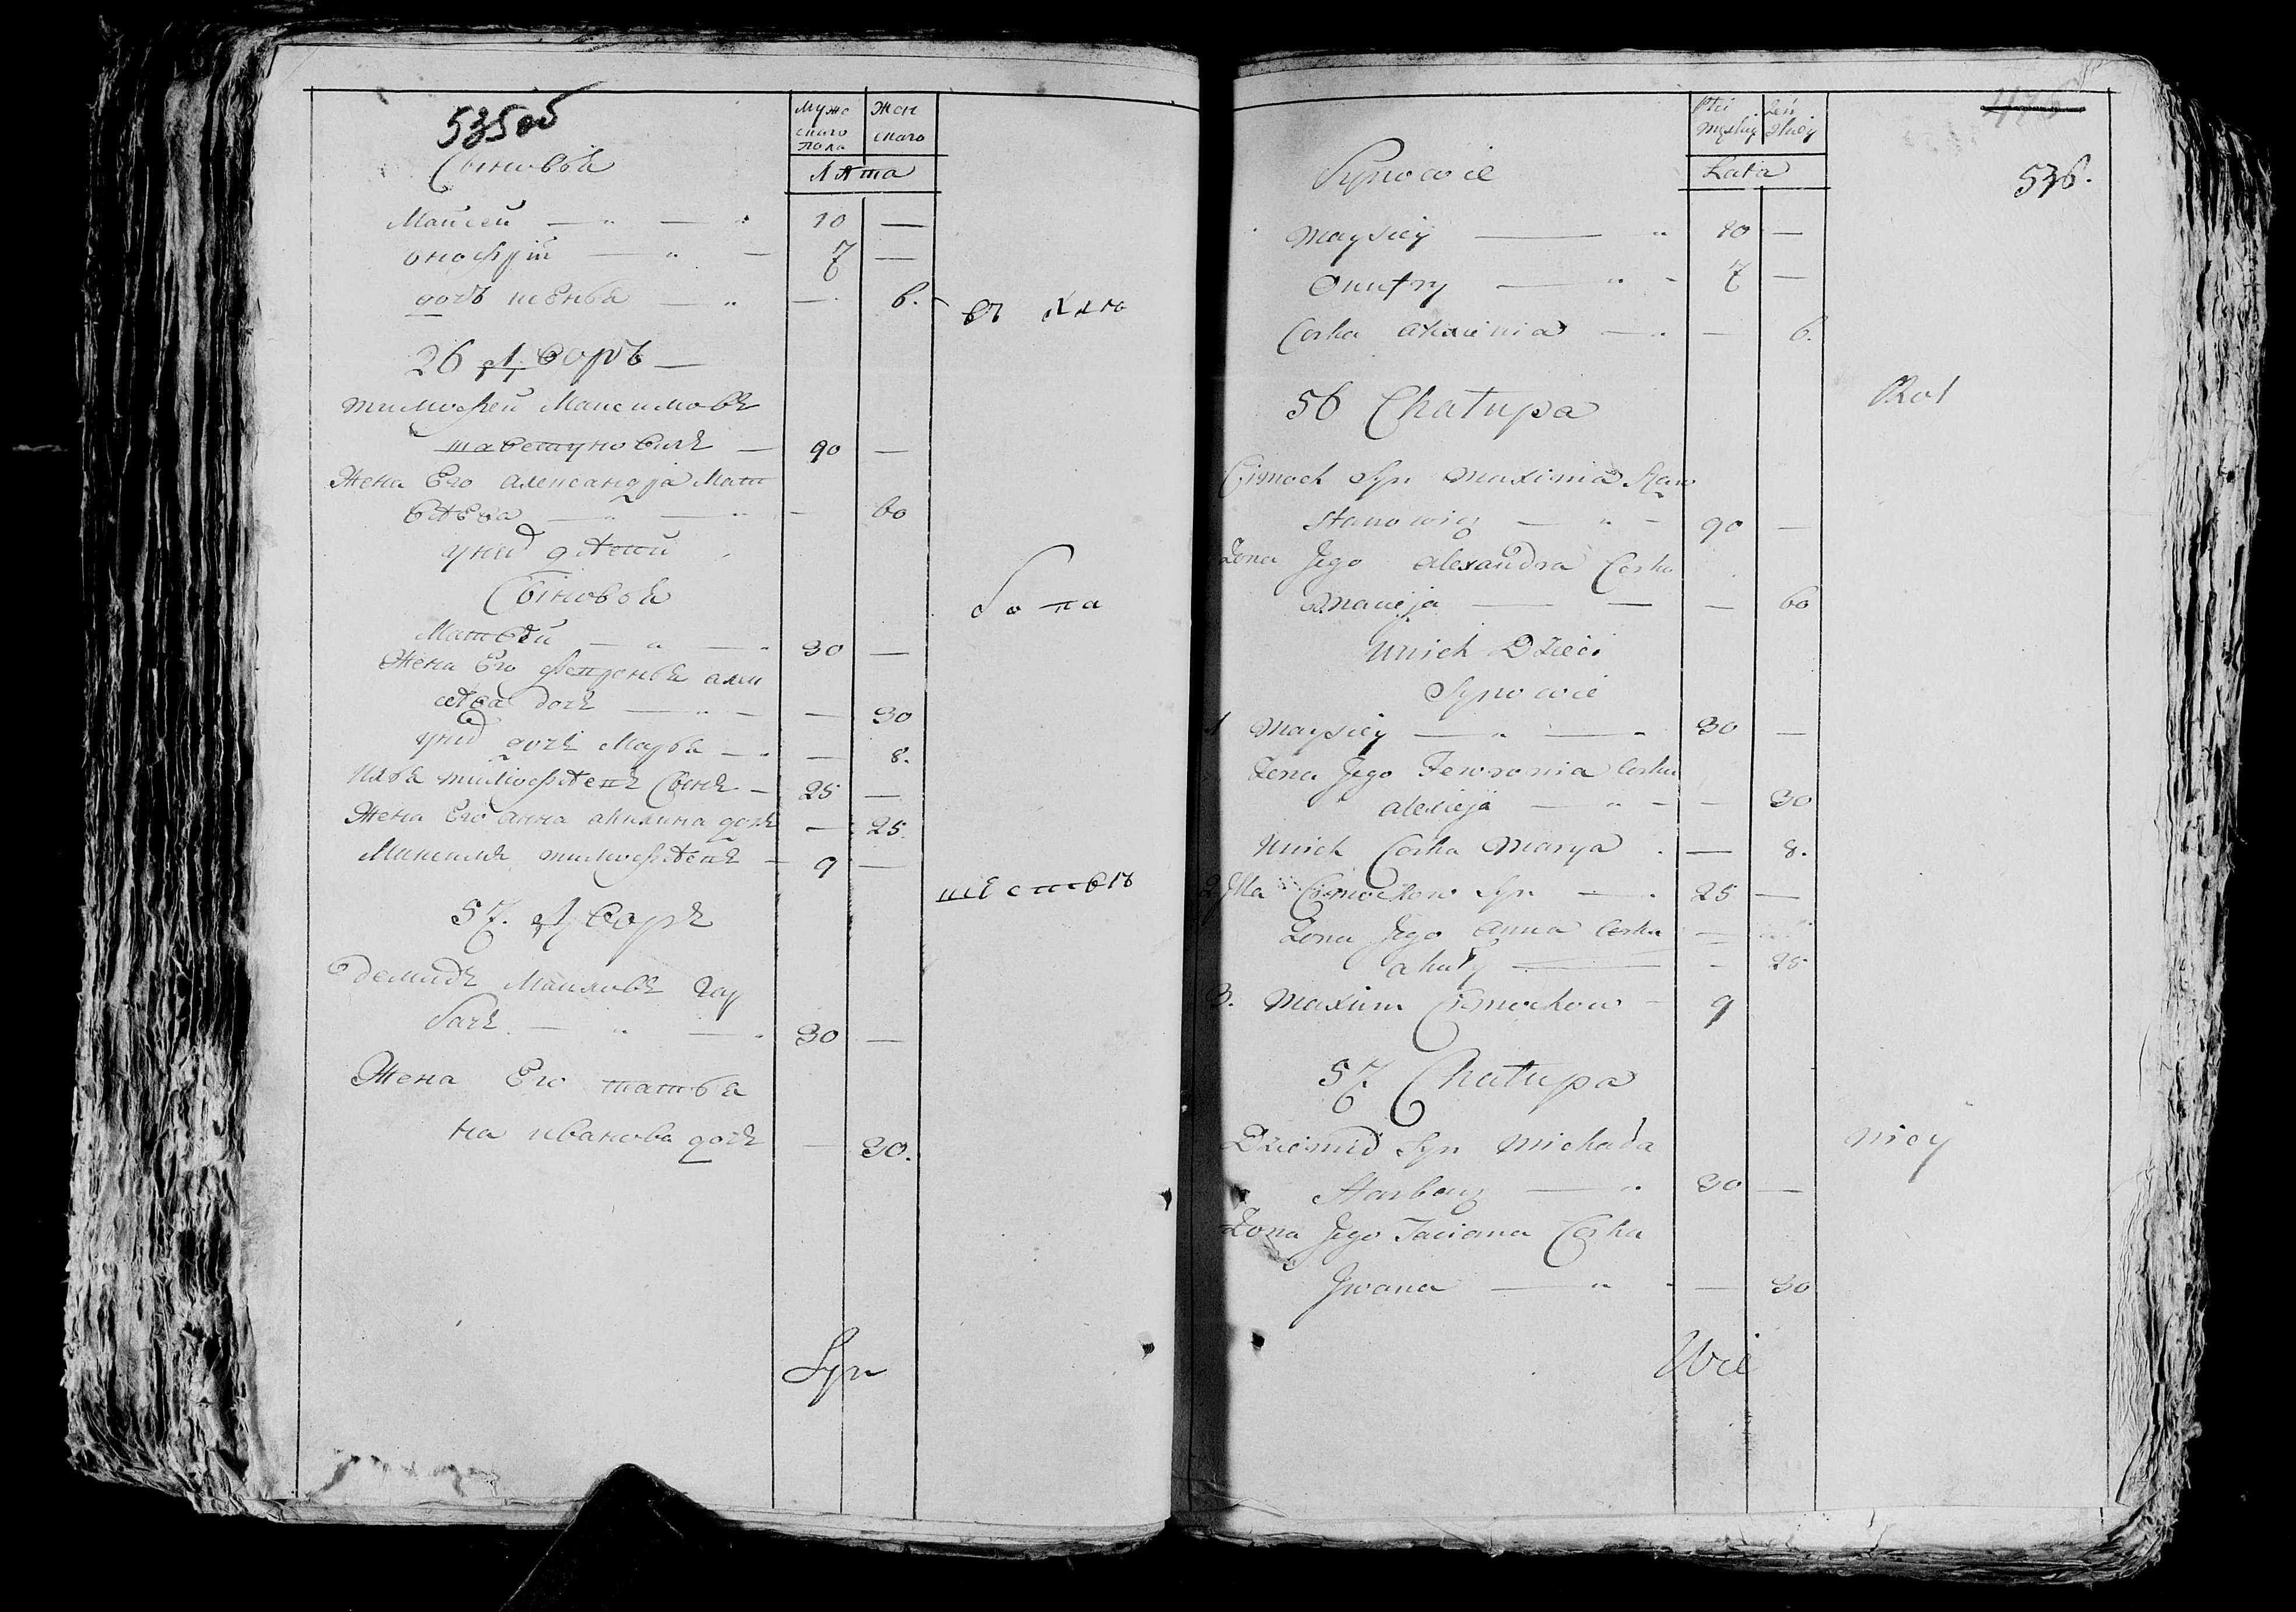 535об
Муже
скаго
пола
Жен
скаго
Лѣта
Сыновья
Маисей — „ — „ 10 —
Онофрій — „ — 7 —
дочь ксенья — „ — 6.
въ
26 дворъ —
тимофей Максимовъ
— 90 —
Жена Его александра Мат
вѣева — „ — „ — 60
уних дѣтей
Сыновья
Матвѣй — „ — „ 30 —
Жена Его февронья але
ѣева дочь — „ — — 30
уних дочь Марья — „ — 8.
Илья тимофѣевъ Сынъ — 25 —
Жена Его анна акилина дочь — 25.
Максимъ тимофѣевъ — 9 —
57. дворъ
демидъ Маилов Гар
бачъ. — „ — „ 30 —
Жена Его татья
на иванова дочь — 30.
Syn
Płci
Męskiey
Żeń
skiey
Lata
536.
Synowie
Maysiey — „ 10 —
Onufry — „ — 7 —
Corka axienia — „ — 6.
56 Chałupa
Cimoch Syn Maxima
stanowicz — „ — 90 —
Żona Jego Alexandra Corka
Macieja — — — 60
Unich Dzieci
Synowie
1 Maysiey — „ — „ 30 —
Żona Jego Fewronia Corka
alexieja — „ — — 30
Unich Corka Marya . — 8.
2 Jlia Cimochow Syn — . 25 —
Żona Jego Anna Corka —
— — 25
3. Maxim Cimochow — 9
57 Chałupa
Dziemid Syn Michała
Harbacz — „ 30 —
Żona Jego Taciana Corka
Jwana — „ — — 30